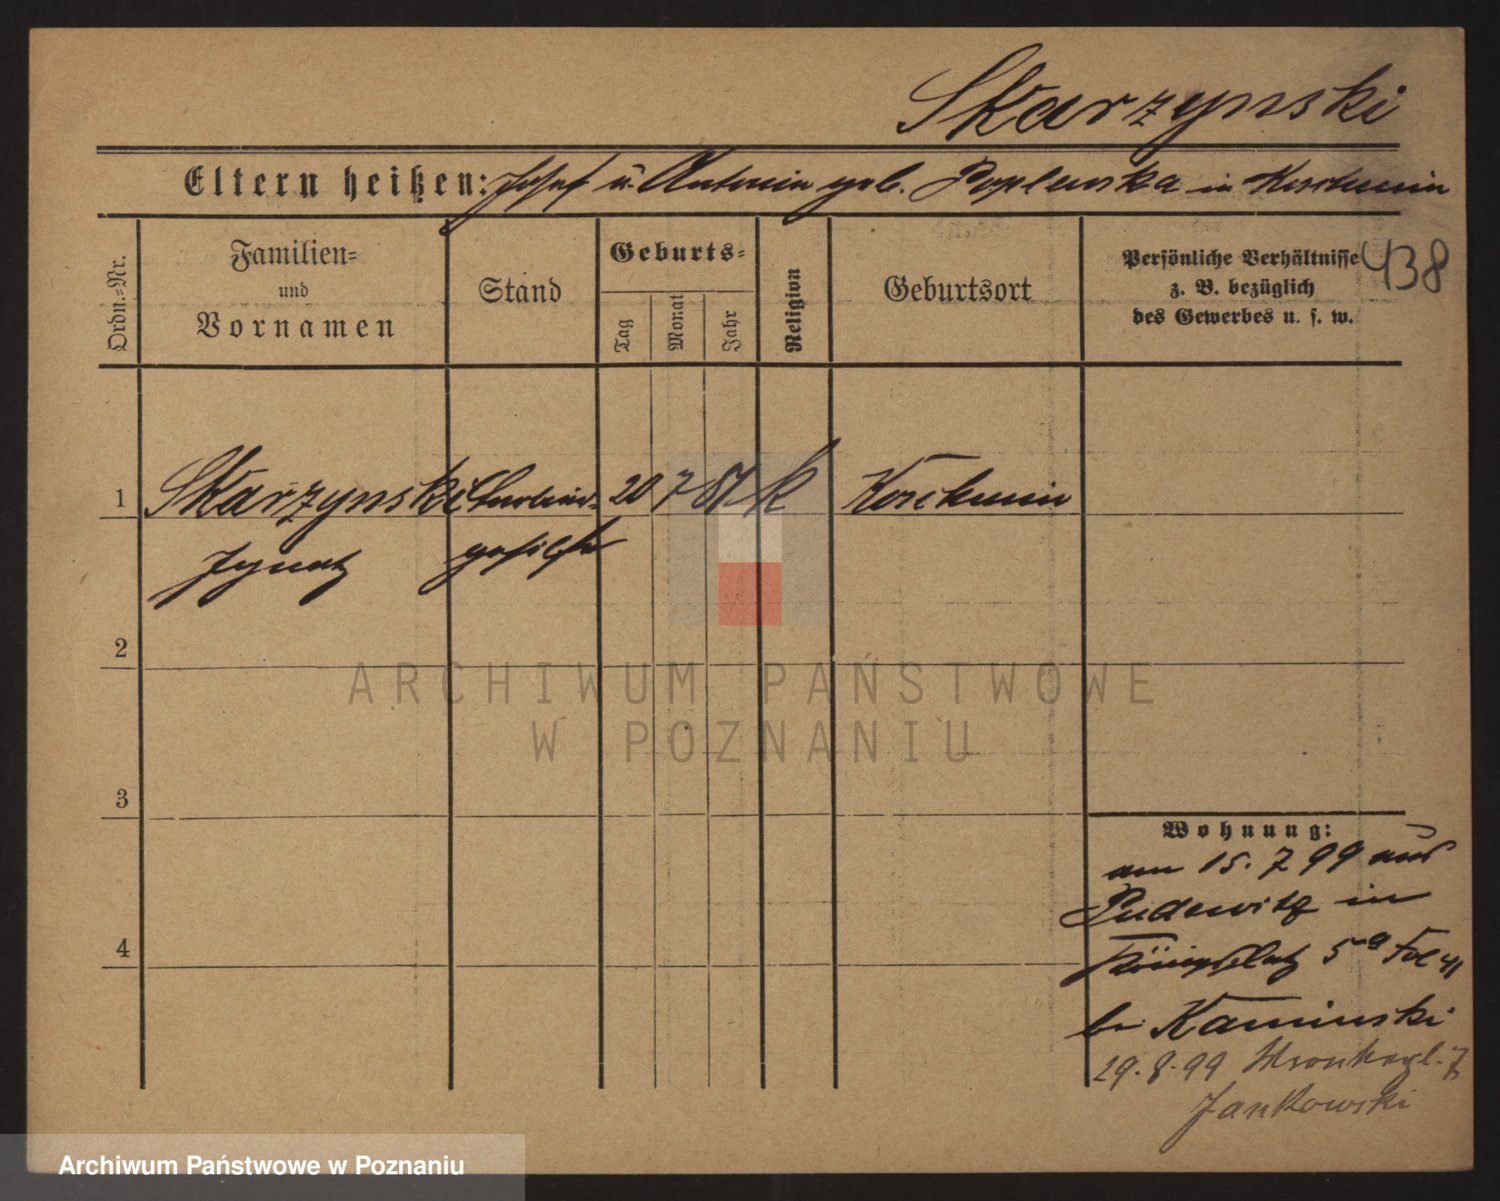 Skarzynski
Eltern heißen: Josef u. Antonie geb. Poplenska in Koschmin
438
Ordn.-Nr.
Familien-
und
Vornamen
Stand
Geburts-
Tag
Monat
Jahr
Religion
Geburtsort
Persönliche Verhältnisse
z. B. bezüglich
des Gewerbes u. s. w.
1 Skarzynski 20 7 81 k Koschmin
Ignatz gehilfe
2
3
4
Wohnung:
am 15. 7 99 aus
Pudewitz in
Königsplatz 5a
bei Kaminski
29. 8. 99
Jankowski
ARCHIWUM PAŃSTWOWE
W POZNANIU
Archiwum Państwowe w Poznaniu